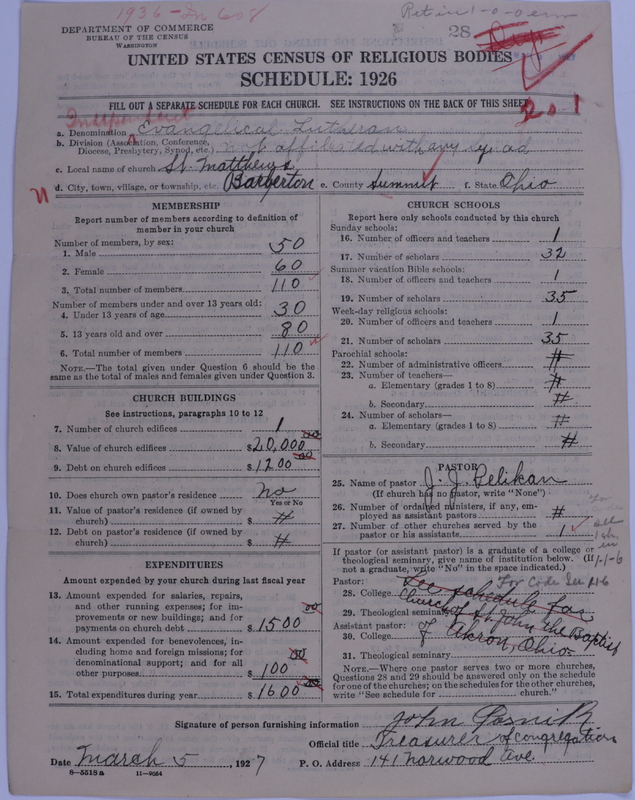 1936-In 608
DEPARTMENT OF COMMERCE
BUREAU OF THE CENSUS
WASHINGTON
28
UNITED STATES CENSUS OF RELIGIOUS BODIES
SCHEDULE: 1926
FILL OUT A SEPARATE SCHEDULE FOR EACH CHURCH. SEE INSTRUCTIONS ON THE BACK OF THIS SHEET
2-1
Independent
a. Denomination Evangelical Lutheran
b. Division (Association, Conference, Diocese, Presbytery, Synod, etc.) not affiliated with any synod
c. Local name of church St. Matthew's
d. City, town, village, or township, etc. Barberton e. County Summit f. State Ohio
MEMBERSHIP
Report number of members according to definition of member in your church
Number of members, by sex:
1. Male 50
2. Female 60
3. Total number of members 110
Number of members under and over 13 years old:
4. Under 13 years of age 30
5. 13 years old and over 80
6. Total number of members 110
NOTE.—The total given under Question 6 should be the same as the total of males and females given under Question 3.
CHURCH BUILDINGS
See instructions, paragraphs 10 to 12
7. Number of church edifices 1
8. Value of church edifices $20,000
9. Debt on church edifices $1200
10. Does church own pastor's residence No
Yes or No
11. Value of pastor's residence (if owned by church) $ #
12. Debt on pastor's residence (if owned by church) $ #
EXPENDITURES
Amount expended by your church during last fiscal year
13. Amount expended for salaries, repairs, and other running expenses; for improvements or new buildings; and for payments on church debt $1500
14. Amount expended for benevolences, including home and foreign missions; for denominational support; and for all other purposes $100
15. Total expenditures during year $1600
CHURCH SCHOOLS
Report here only schools conducted by this church
Sunday schools:
16. Number of officers and teachers 1
17. Number of scholars 32
Summer vacation Bible schools:
18. Number of officers and teachers 1
19. Number of scholars 35
Week-day religious schools:
20. Number of officers and teachers 1
21. Number of scholars 35
Parochial schools:
22. Number of administrative officers #
23. Number of teachers—
a. Elementary (grades 1 to 8) #
b. Secondary #
24. Number of scholars—
a. Elementary (grades 1 to 8) #
b. Secondary #
PASTOR
25. Name of pastor J. J. Pelikan
(If church has no pastor, write "None")
26. Number of ordained ministers, if any, employed as assistant pastors #
27. Number of other churches served by the pastor or his assistants 1
If pastor (or assistant pastor) is a graduate of a college or theological seminary, give name of institution below. (If not a graduate, write "No" in the space indicated.)
Pastor: For Code See
28. College See schedule for
29. Theological seminary Church of St. John the Baptist
Assistant pastor:
30. College of Akron, Ohio
31. Theological seminary
NOTE.—Where one pastor serves two or more churches, Questions 28 and 29 should be answered only on the schedule for one of the churches; on the schedules for the other churches, write "See schedule for church."
Signature of person furnishing information John
Official title Treasurer of congregation
Date March 5, 1927 P. O. Address 141 Norwood Ave.
8-5518a 11-9654